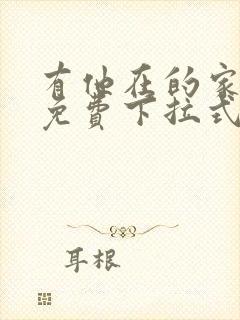 有他在的家
免费下拉式
耳根